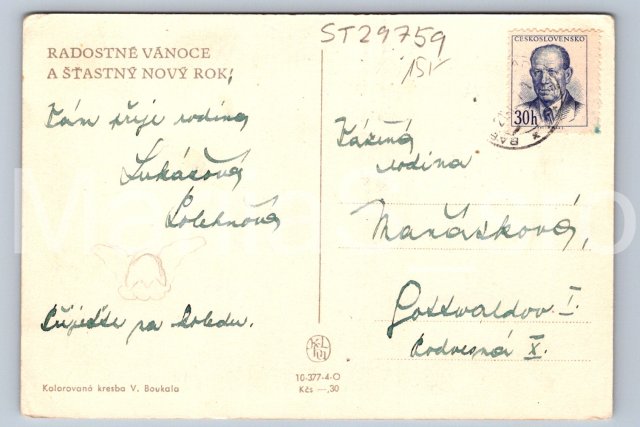 ST29759
15,-
RADOSTNÉ VÁNOCE
A ŠŤASTNÝ NOVÝ ROK,
Vám přeje rodina
Lukášová
Přijeďte na koledu.
Kolorovaná kresba V. Boukala
ČESKOSLOVENSKO
30h
Vážená
rodina
Maňásková,
Gottwaldov I.
Podvesná X.
10-377-4-O
Kčs —,30